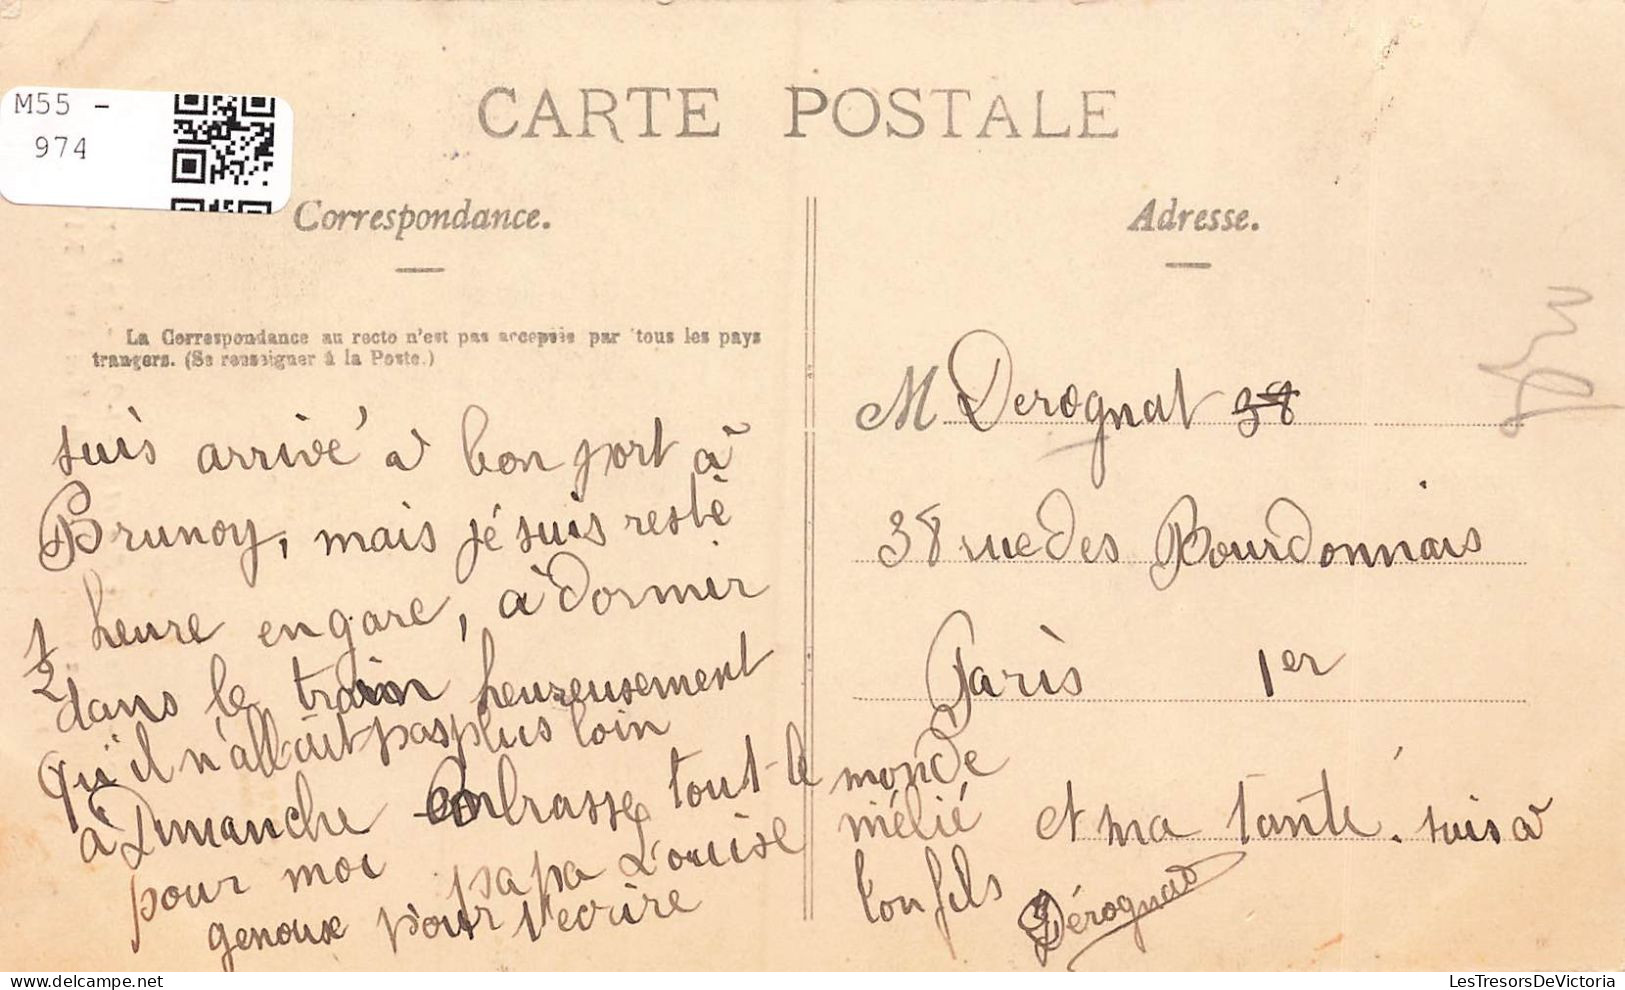 M55 -
974
CARTE POSTALE
Correspondance.
Adresse.
La Correspondance au recto n'est pas acceptée par tous les pays
trangers. (Se renseigner à la Poste.)
suis arrivé à bon port à
Brunoy, mais jé suis resté
1/2 heure en gare, à dormir
dans le train heureusement
qu'il n'allait pas plus loin
à Dimanche embrasse tout le monde
pour moi papa Louise mélié et ma tante. suis à
genoux pour t'ecrire ton fils Dérognat
M Derognat 38
38 rue des Bourdonnais
Paris 1er
LesTresorsDeVictoria